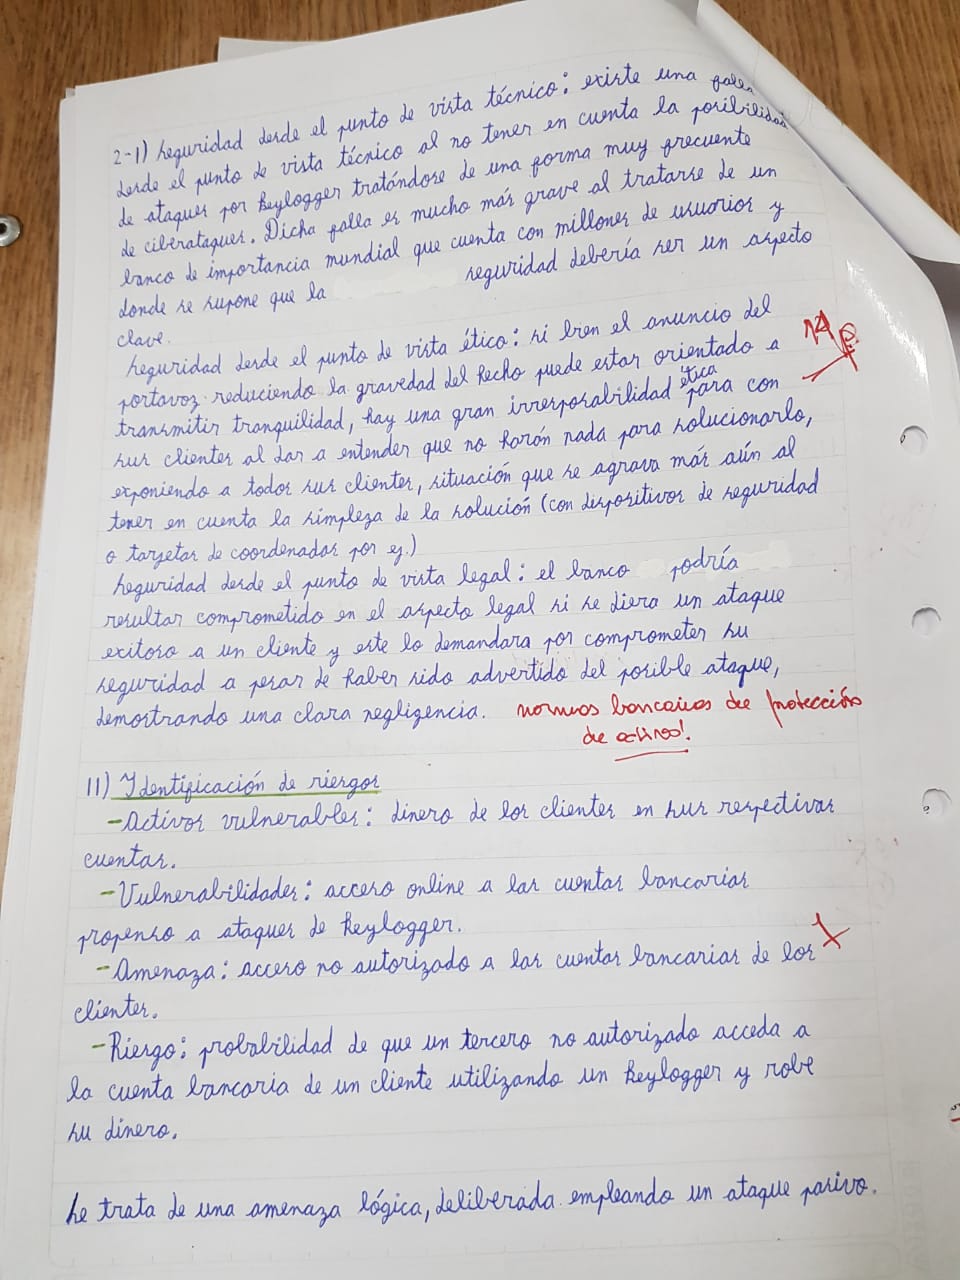 2-1) Seguridad desde el punto de vista técnico: existe una falla
desde el punto de vista técnico al no tener en cuenta la posibilidad
de ataques por keylogger tratándose de una forma muy frecuente
de ciberataques. Dicha falla es mucho más grave al tratarse de un
banco de importancia mundial que cuenta con millones de usuarios y
donde se supone que la seguridad debería ser un aspecto
clave.
Seguridad desde el punto de vista ético: si bien el anuncio del
portavoz reduciendo la gravedad del hecho puede estar orientado a
transmitir tranquilidad, hay una gran irresposabilidad ética para con
sus clientes al dar a entender que no harán nada para solucionarlo,
exponiendo a todos sus clientes, situación que se agrava más aún al
tener en cuenta la simpleza de la solución (con dispositivos de seguridad
o tarjetas de coordenadas por ej.)
Seguridad desde el punto de vista legal: el banco podría
resultar comprometido en el aspecto legal si se diera un ataque
exitoso a un cliente y este lo demandara por comprometer su
seguridad a pesar de haber sido advertido del posible ataque,
demostrando una clara negligencia. normas bancarias de protección
de activos!
11) Identificación de riesgos
- Activos vulnerables: dinero de los clientes en sus respectivas
cuentas.
- Vulnerabilidades: acceso online a las cuentas bancarias
propenso a ataques de keylogger.
- Amenaza: acceso no autorizado a las cuentas bancarias de los
clientes.
- Riesgo: probabilidad de que un tercero no autorizado acceda a
la cuenta bancaria de un cliente utilizando un keylogger y robe
su dinero.
Se trata de una amenaza lógica, deliberada empleando un ataque pasivo.